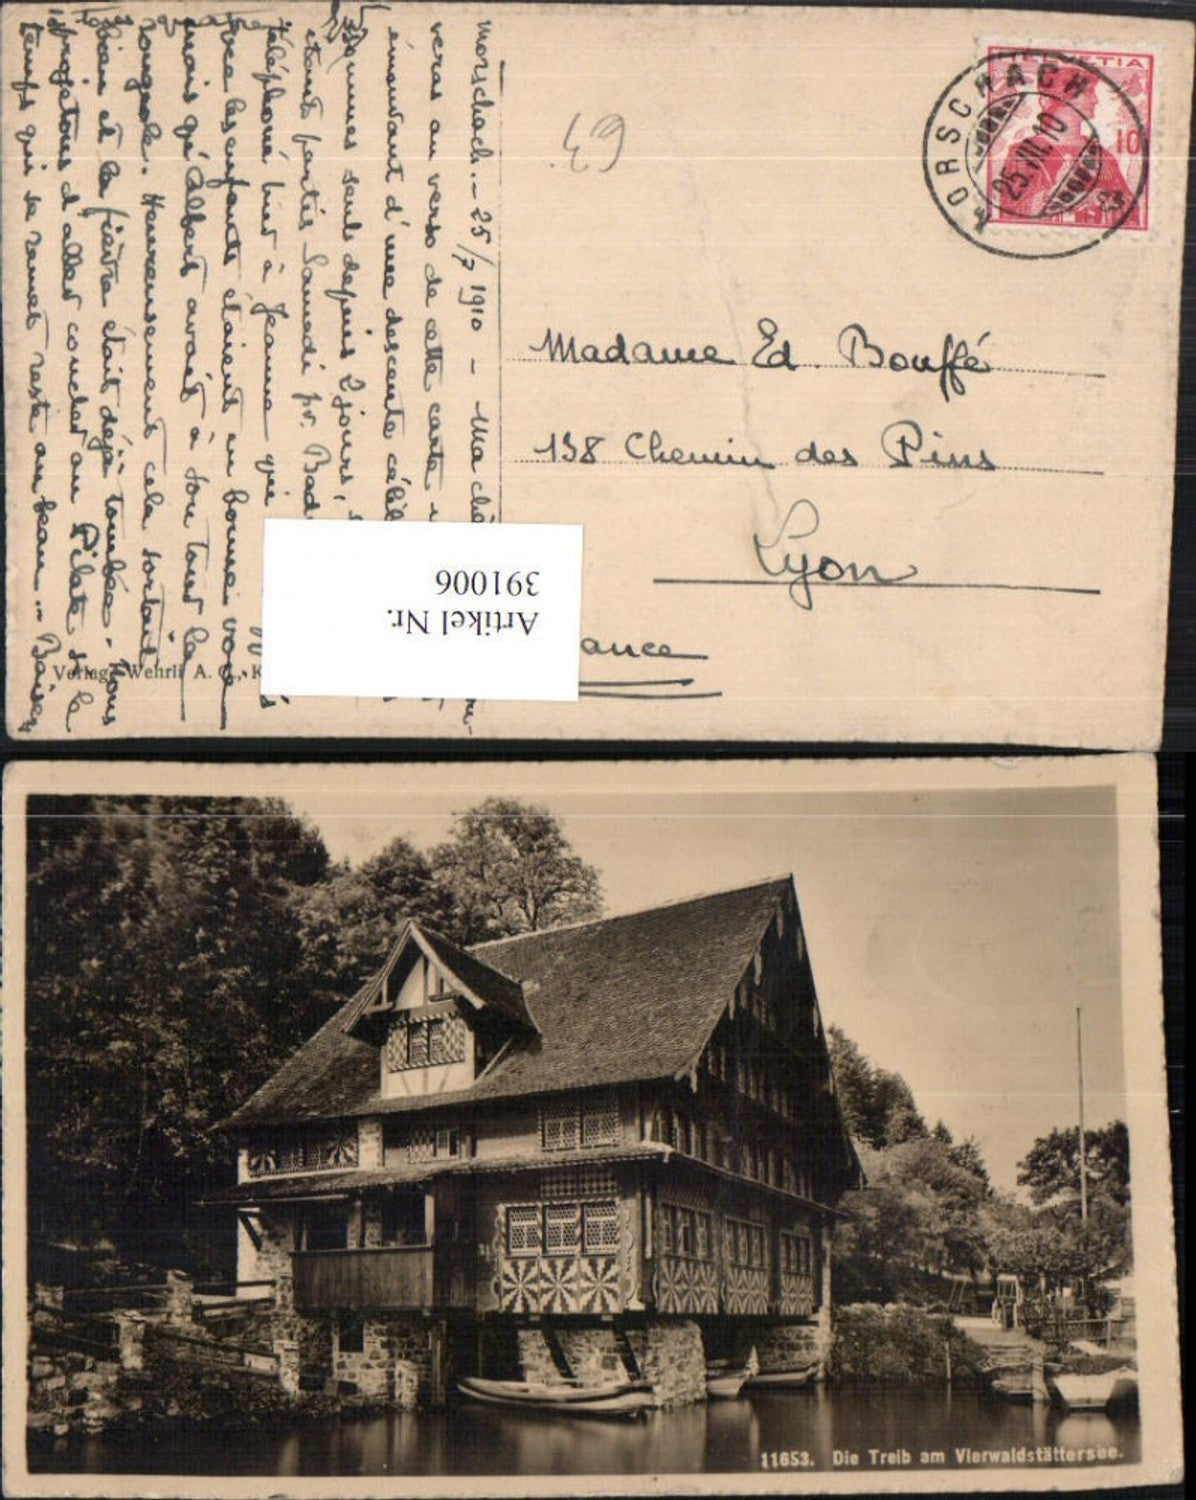 Morschach. - 25/7 1910 - Ma chè
verras au verso de cette carte
émouvant d'une descente célè
sommes seuls depuis 2 jours,
étant partis Samedi pr. Bad
téléphoné hier à Jeanne qui
avec les enfants étaient en bonne voie
mais qu'Albert avait à son tour la
rougeole. Heureusement cela sortait
bien et la fièvre était déjà tombée. Nous
projetons d'aller coucher au Pilate si le
temps qui se remet reste au beau. Baisers
Verlag Wehrli A. G., K
63.
HELVETIA
10
MORSCHACH
25.VII.10
Madame Ed. Bouffé
138 Chemin des Pins
Lyon
ance
Artikel Nr.
391006
11653. Die Treib am Vierwaldstättersee.